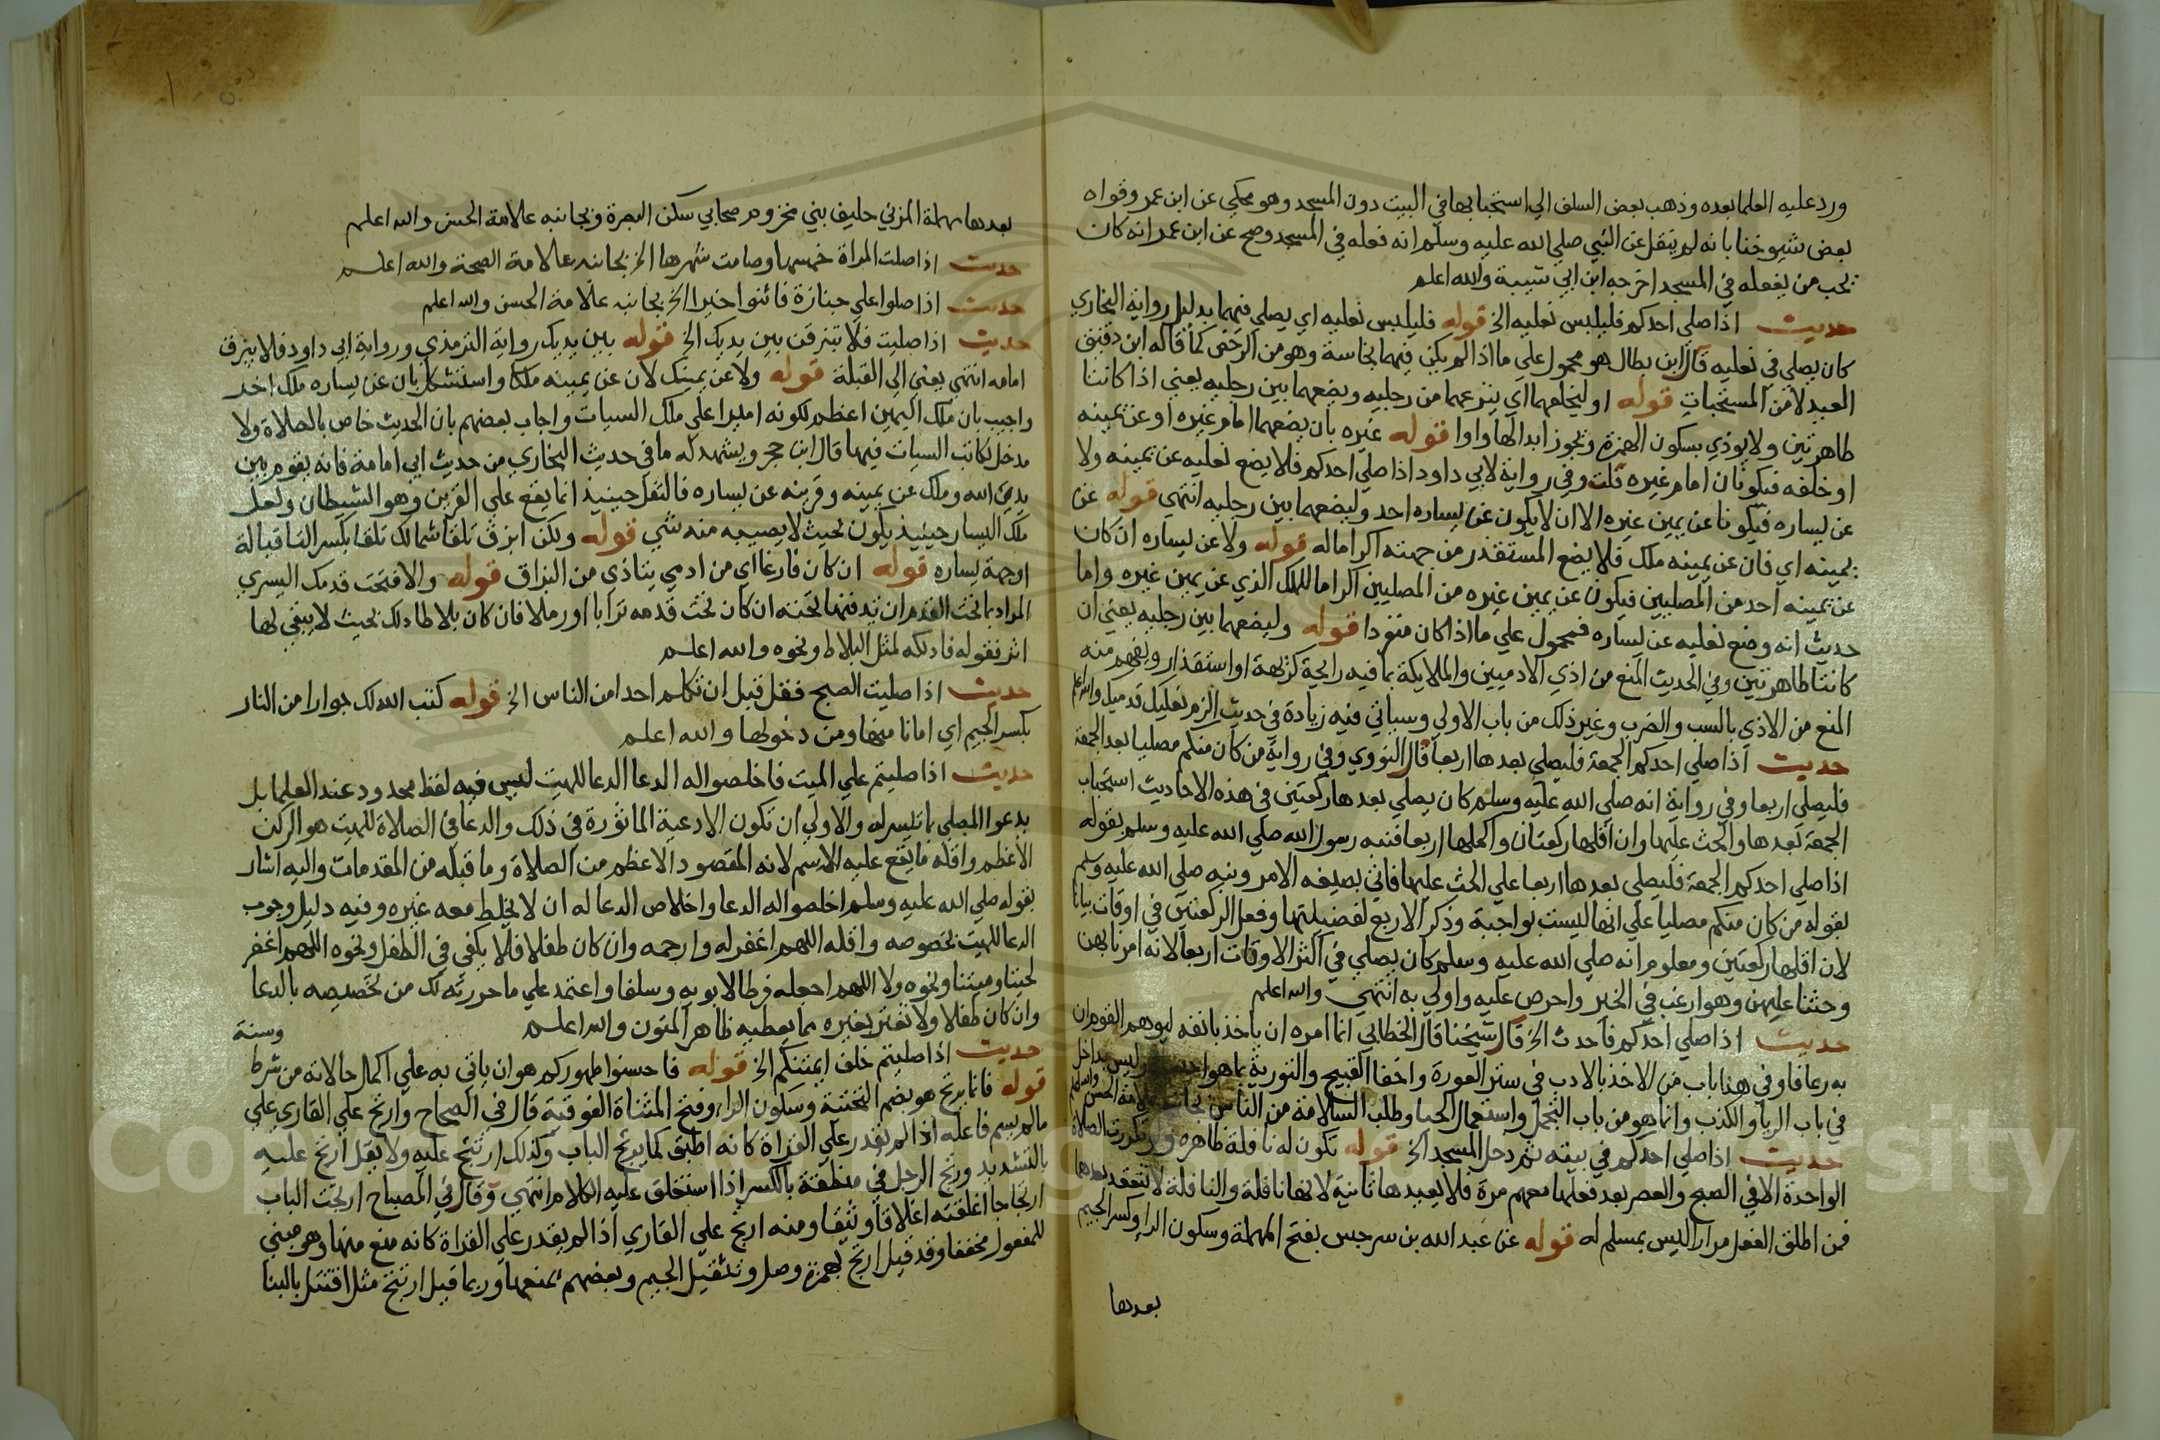 ورد عليه العلما بعده وذهب بعض السلف الي استحبابها في البيت دون المسجد وهو محكي عن ابن عمر وقواه
بعض شيوخنا بانه لم ينقل عن النبي صلي الله عليه وسلم انه فعله في المسجد وصح عن ابن عمر انه كان
يحب من يفعله في المسجد اخرجه ابن ابي شيبة والله اعلم
حديث اذا صلي احدكم فليلبس نعليه الخ قوله فليلبس نعليه اي يصلي فيهما بدليل رواية البخاري
كان يصلي في نعليه قال ابن بطال هو محمول علي ما اذا لم يكن فيهما نجاسة وهو من الرخص كما قاله ابن دقيق
العيد لا من المستحبات قوله او ليخلعهما اي ينزعهما من رجليه ويضعهما بين رجليه يعني اذا كانتا
طاهرتين ولا يوذي بسكون الهمزة ويجوز ابدالها واوا قوله غيره بان يضعهما امام غيره او عن يمينه
او خلفه فيكونان امام غيره قلت وفي رواية لابي داود اذا صلي احدكم فلا يضع نعليه عن يمينه ولا
عن يساره فيكونا عن يمين غيره الا ان لا يكون عن يساره احد وليضعهما بين رجليه انتهي قوله عن
يمينه اي فان عن يمينه ملك فلا يضع المستقذر من جهته اكراما له قوله ولا عن يساره ان كان
عن يمينه احد من المصليين فيكون عن يمين غيره من المصليين اكراما للملك الذي عن يمين غيره واما
حديث انه وضع نعليه عن يساره فمحمول علي ما اذا كان منفردا قوله وليضعهما بين رجليه يعني ان
كانتا طاهرتين وفي الحديث المنع من اذي الادميين والملايكة بما فيه رايحة كريهة او استقذار ويفهم منه
المنع من الاذي بالسب والضرب وغير ذلك من باب الاولي وسياتي فيه زيادة في حديث الزم نعليك قدميك والله اعلم
حديث اذا صلي احدكم الجمعة فليصلي بعدها اربعا قال النووي وفي رواية من كان منكم مصليا بعد الجمعة
فليصلي اربعا وفي رواية انه صلي الله عليه وسلم كان يصلي بعدها ركعتين في هذه الاحاديث استحباب
الجمعة بعدها والحث عليها وان اقلها ركعتان واكملها اربعا فنبه رسول الله صلي الله عليه وسلم بقوله
اذا صلي احدكم الجمعة فليصلي بعدها اربعا علي الحث عليها فاتي بصيغه الامر ونبه صلي الله عليه وسلم
بقوله من كان منكم مصليا علي انها ليست بواجبة وذكر الاربع لفضيلتها وفعل الركعتين في اوقات بيانا
لان اقلها ركعتين ومعلوم انه صلي الله عليه وسلم كان يصلي في اكثر الاوقات اربعا لانه امرنا بهن
وحثنا عليهن وهو ارغب في الخير واحرص عليه واولي به انتهي والله اعلم
حديث اذا صلي احدكم فاحدث الخ قال شيخنا قال الخطابي انما امره ان ياخذ بانفه ليوهم القوم ان
به رعافا وفي هذا باب من الاخذ بالادب في ستر العورة واخفا القبيح والتورية بما هو احسن وليس بداخل
في باب الريا والكذب وانما هو من باب التجمل واستعمال الحيا وطلب السلامة من الناس بجانبه علامة الحسن والله اعلم
حديث اذا صلي احدكم في بيته ثم دخل المسجد الخ قوله تكون له نافلة ظاهره ولو تكررت الصلاة
الواحدة الا في الصبح والعصر بعد فعلها معهم مرة فلا يعيدها ثانية لانها نافلة والنافلة لا تنعقد بعدها
فمن اطلق الفعل مرارا ليس بمسلم له قوله عن عبد الله بن سرجس بفتح المهملة وسكون الرا وكسر الجيم
بعدها
بعدها مهملة المزني حليف بني مخزوم صحابي سكن البصرة وبجانبه علامة الحسن والله اعلم
حديث اذا صلت المراة خمسها وصامت شهرها الخ بجانبه علامة الصحة والله اعلم
حديث اذا صلوا علي جنازة فاثنوا خيرا الخ بجانبه علامة الحسن والله اعلم
حديث اذا صليت فلا تبزقن بين يديك الخ قوله بين يديك رواية الترمذي ورواية ابي داود فلا يبزق
امامه انتهي يعني الي القبلة قوله ولا عن يمينك لان عن يمينه ملكا واستشكل بان عن يساره ملك اخر
واجيب بان ملك اليمين اعظم لكونه اميرا علي ملك السيات واجاب بعضهم بان الحديث خاص بالصلاة ولا
مدخل لكاتب السيات فيها قال ابن حجر ويشهد له ما في حديث البخاري من حديث ابي امامة فانه يقوم بين
يدي الله وملك عن يمينه وقرينه عن يساره فالتفل حينيذ انما يقع علي القرين وهو الشيطان ولعل
ملك اليسار حينيذ يكون بحيث لا يصيبه منه شي قوله ولكن ابزق تلقا شمالك تلقا بكسر التا قبالة
اوجهة يساره قوله ان كان فارغا اي من ادمي يتاذي من البزاق قوله والا فتحت قدمك اليسري
المراد بما تحت القدم ان يدفنها تحته ان كان تحت قدمه ترابا او رملا فان كان بلاطا دلك بحيث لا يبقي لها
اثر فقوله فادلكه لمثل البلاط ونحوه والله اعلم
حديث اذا صليت الصبح فقل قبل ان تكلم احدا من الناس الخ قوله كتب الله لك جوارا من النار
بكسر الجيم اي امانا منها ومن دخولها والله اعلم
حديث اذا صليتم علي الميت فاخلصوا له الدعا الدعا للميت ليس فيه لفظ محدود عند العلما بل
يدعوا المصلي بما تيسر له والاولي ان تكون الادعية الماثورة في ذلك والدعا في الصلاة للميت هو الركن
الاعظم واقله ما يقع عليه الاسم لانه المقصود الاعظم من الصلاة وما قبله من المقدمات واليه اشار
بقوله صلي الله عليه وسلم اخلصوا له الدعا واخلاص الدعا له ان لا يخلط معه غيره وفيه دليل وجوب
الدعا للميت بخصوصه واقله اللهم اغفر له وارحمه وان كان طفلا فلا يكفي في الطفل ونحوه اللهم اغفر
لحينا وميتنا ونحوه ولا اللهم اجعله فرطا لابويه وسلفا واعتمد علي ما حررته لك من تخصيصه بالدعا
وان كان طفلا ولا تغتر بغيره بما يعطيه ظاهر المتون والله اعلم
وسنة
حديث اذا صليتم خلف ايمتكم الخ قوله فاحسنوا طهوركم هو ان ياتي به علي اكمل حالاته من شرط
قوله فانما يرتج هو بضم التحتية وسكون الراء وفتح المثناة الفوقية قال في الصحاح وارتج علي القاري علي
ما لم يسم فاعله اذا لم يقدر علي القراة كانه اطبق كما يرتج الباب وكذلك ارتتج عليه ولا يقل ارتج عليه
بالتشديد ورتج الرجل في منطقه بالكسر اذا استغلق عليه الكلام انتهي وقال في المصباح ارتجت الباب
ارتاجا اغلقته اغلاقا وثيقا ومنه ارتج علي القاري اذا لم يقدر علي القراة كانه منع منها وهو مبني
للمفعول مخففا وقد قيل ارتج بهمزة وصل وتثقيل الجيم وبعضهم يمنعها وربما قيل ارتتج مثل اقتتل بالبنا